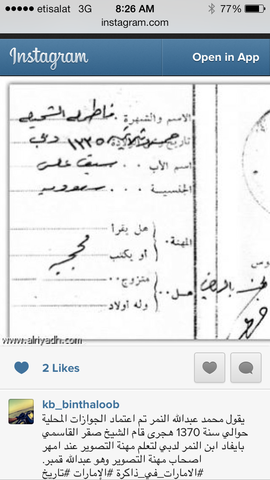 etisalat 3G 8:26 AM 77%
instagram.com
Instagram Open in App
الاسم والشهرة
تاريخ ١٣٣٥ دبي
اسم الأب ... سيف
الجنسية ...
هل يقرأ
المهنة:
أو يكتب
متزوج ...
هل ..
وله أولاد
www.alriyadh.com
2 Likes
kb_binthaloob
يقول محمد عبدالله النمر تم اعتماد الجوازات المحلية
حوالي سنة 1370 هجرى قام الشيخ صقر القاسمي
بايفاد ابن النمر لدبي لتعلم مهنة التصوير عند امهر
اصحاب مهنة التصوير وهو عبدالله قمبر.
#الامارات_في_ذاكرة #الإمارات #تاريخ